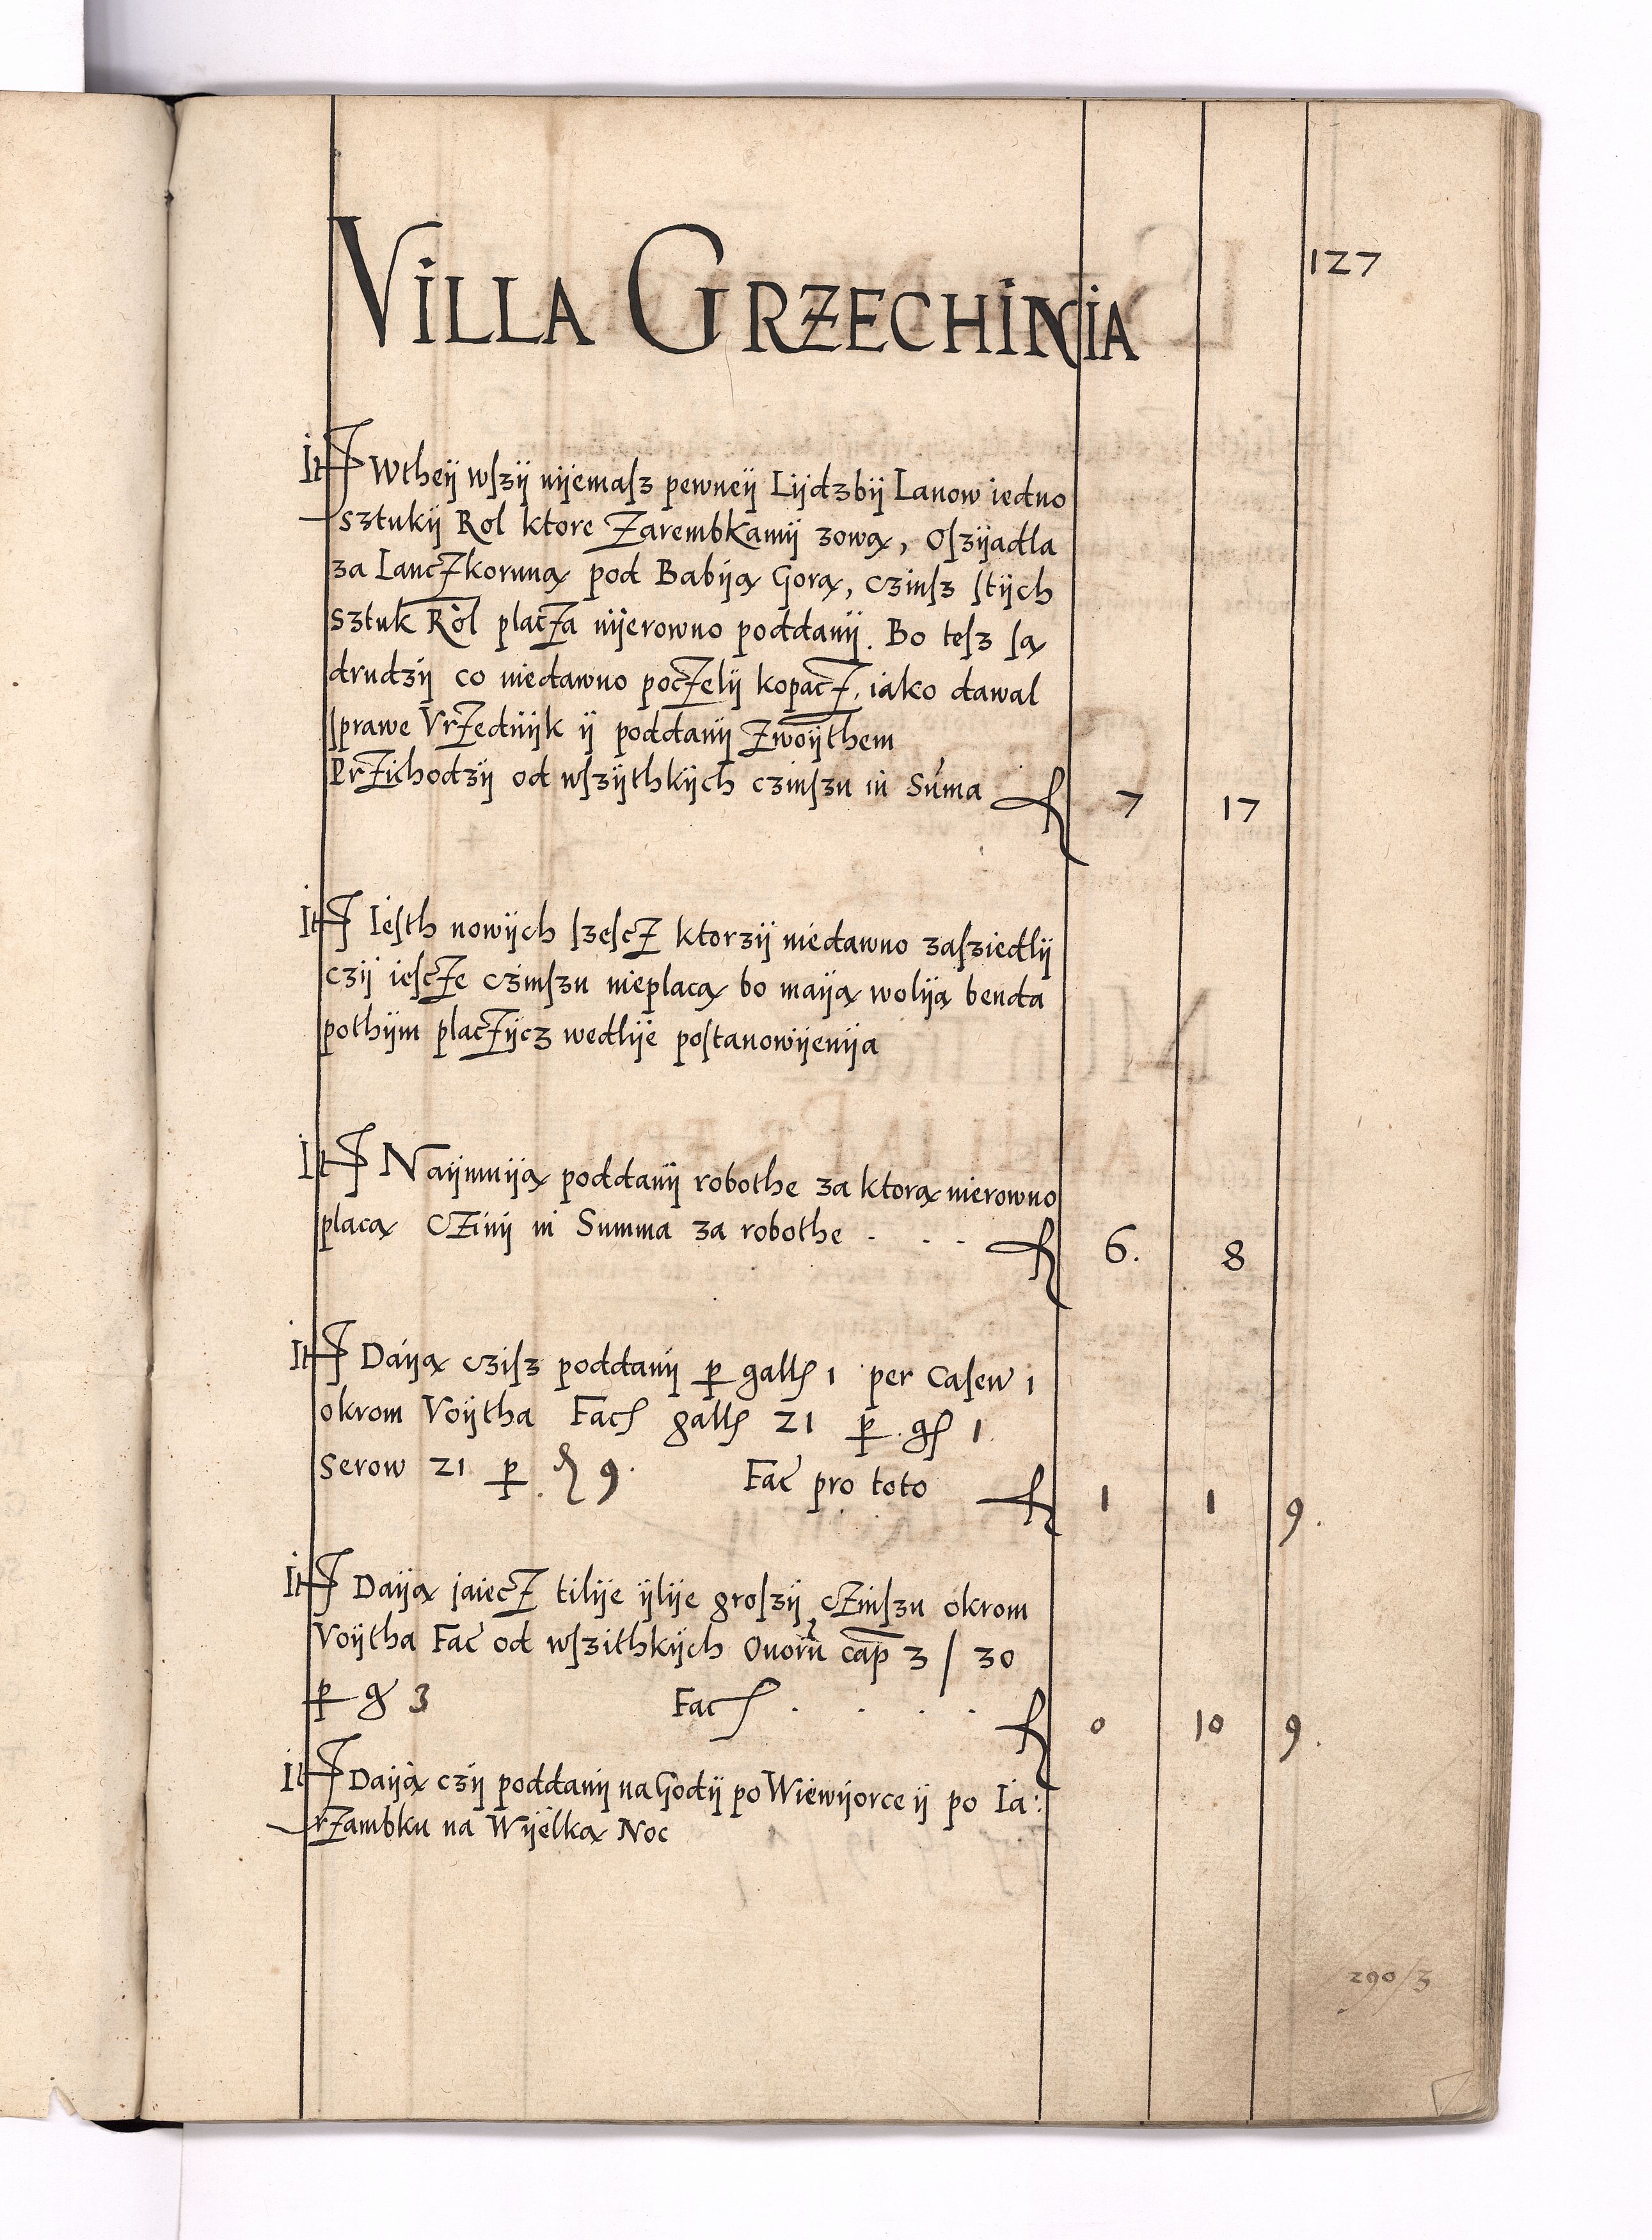 127
VILLA GRZECHINIA
It Wtheÿ wſzÿ nÿemaſz pewneÿ Lÿdzbÿ Lanow iedno
sztukÿ Rol ktore Zarembkamÿ zową, Oſzÿadla
za Lanczkoruną pod Babÿą Gorą, czinſz ſtÿch
sztuk Rol placza nÿerowno poddanÿ. Bo teſz ſą
drudzÿ co niedawno poczelÿ kopacz, iako dawal
ſprawe Vrzednÿk ÿ poddanÿ Zwoÿthem
Przichodzÿ od wſzÿthkÿch czinſzu in Suma 7 17
It Ieſth nowÿch ſzeſcz ktorzÿ niedawno zaſziedlÿ
czÿ ieſcze czinſzu nieplacą bo maÿą wolÿą benda
pothÿm placzÿcz wedlÿe poſtanowÿenÿa
It Naÿmuÿą poddanÿ robothe za ktorą nierowno
placą Czinÿ in Summa za robothe . . . 6. 8
It Daÿą cziſz poddanÿ p gall 1 per Caſew 1
okrom Voÿtha Fac gall 21 p g 1.
Serow 21 p 9. Fac pro toto 1 1 9.
It Daÿą jaiecz tilÿe ÿlÿe groſzÿ czinſzu okrom
Voÿtha Fac od wſzithkÿch Ouoru cap 3 / 30
p g 3 Fac . . . . 0 10 9.
It Daÿą czÿ poddanÿ na Godÿ po Wiewÿorce ÿ po Ia:
rzambku na Wÿelką Noc
290/3